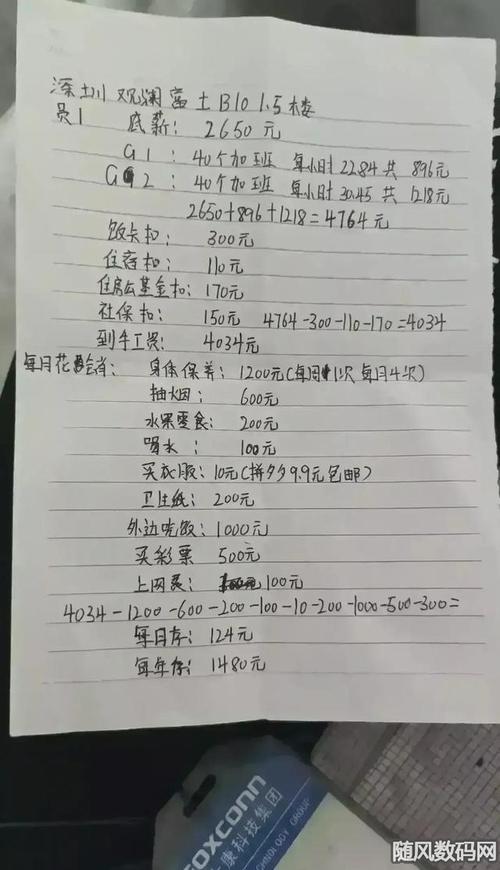 深圳观澜富士B10 1.5楼
员1 底薪: 2650元
G1: 40个加班 每小时22.84共 896元
G2: 40个加班 每小时30.45 共 1218元
2650+896+1218=4764元
饭卡扣: 300元
住宿扣: 110元
住房公基金扣: 170元
社保扣: 150元 4764-300-110-170=4034
到手工资: 4034元
每月花销: 身体保养: 1200元(每周1次 每月4次)
抽烟: 600元
水果零食: 200元
喝水: 100元
买衣服: 10元(拼多多9.9元包邮)
卫生纸: 200元
外边吃饭: 1000元
买彩票 500元
上网: 100元
4034-1200-600-200-100-10-200-1000-500-300=
每月存: 124元
每年存: 1480元
FOXCONN
康科技集团
CHNOLOGY GROUP
随风数码网